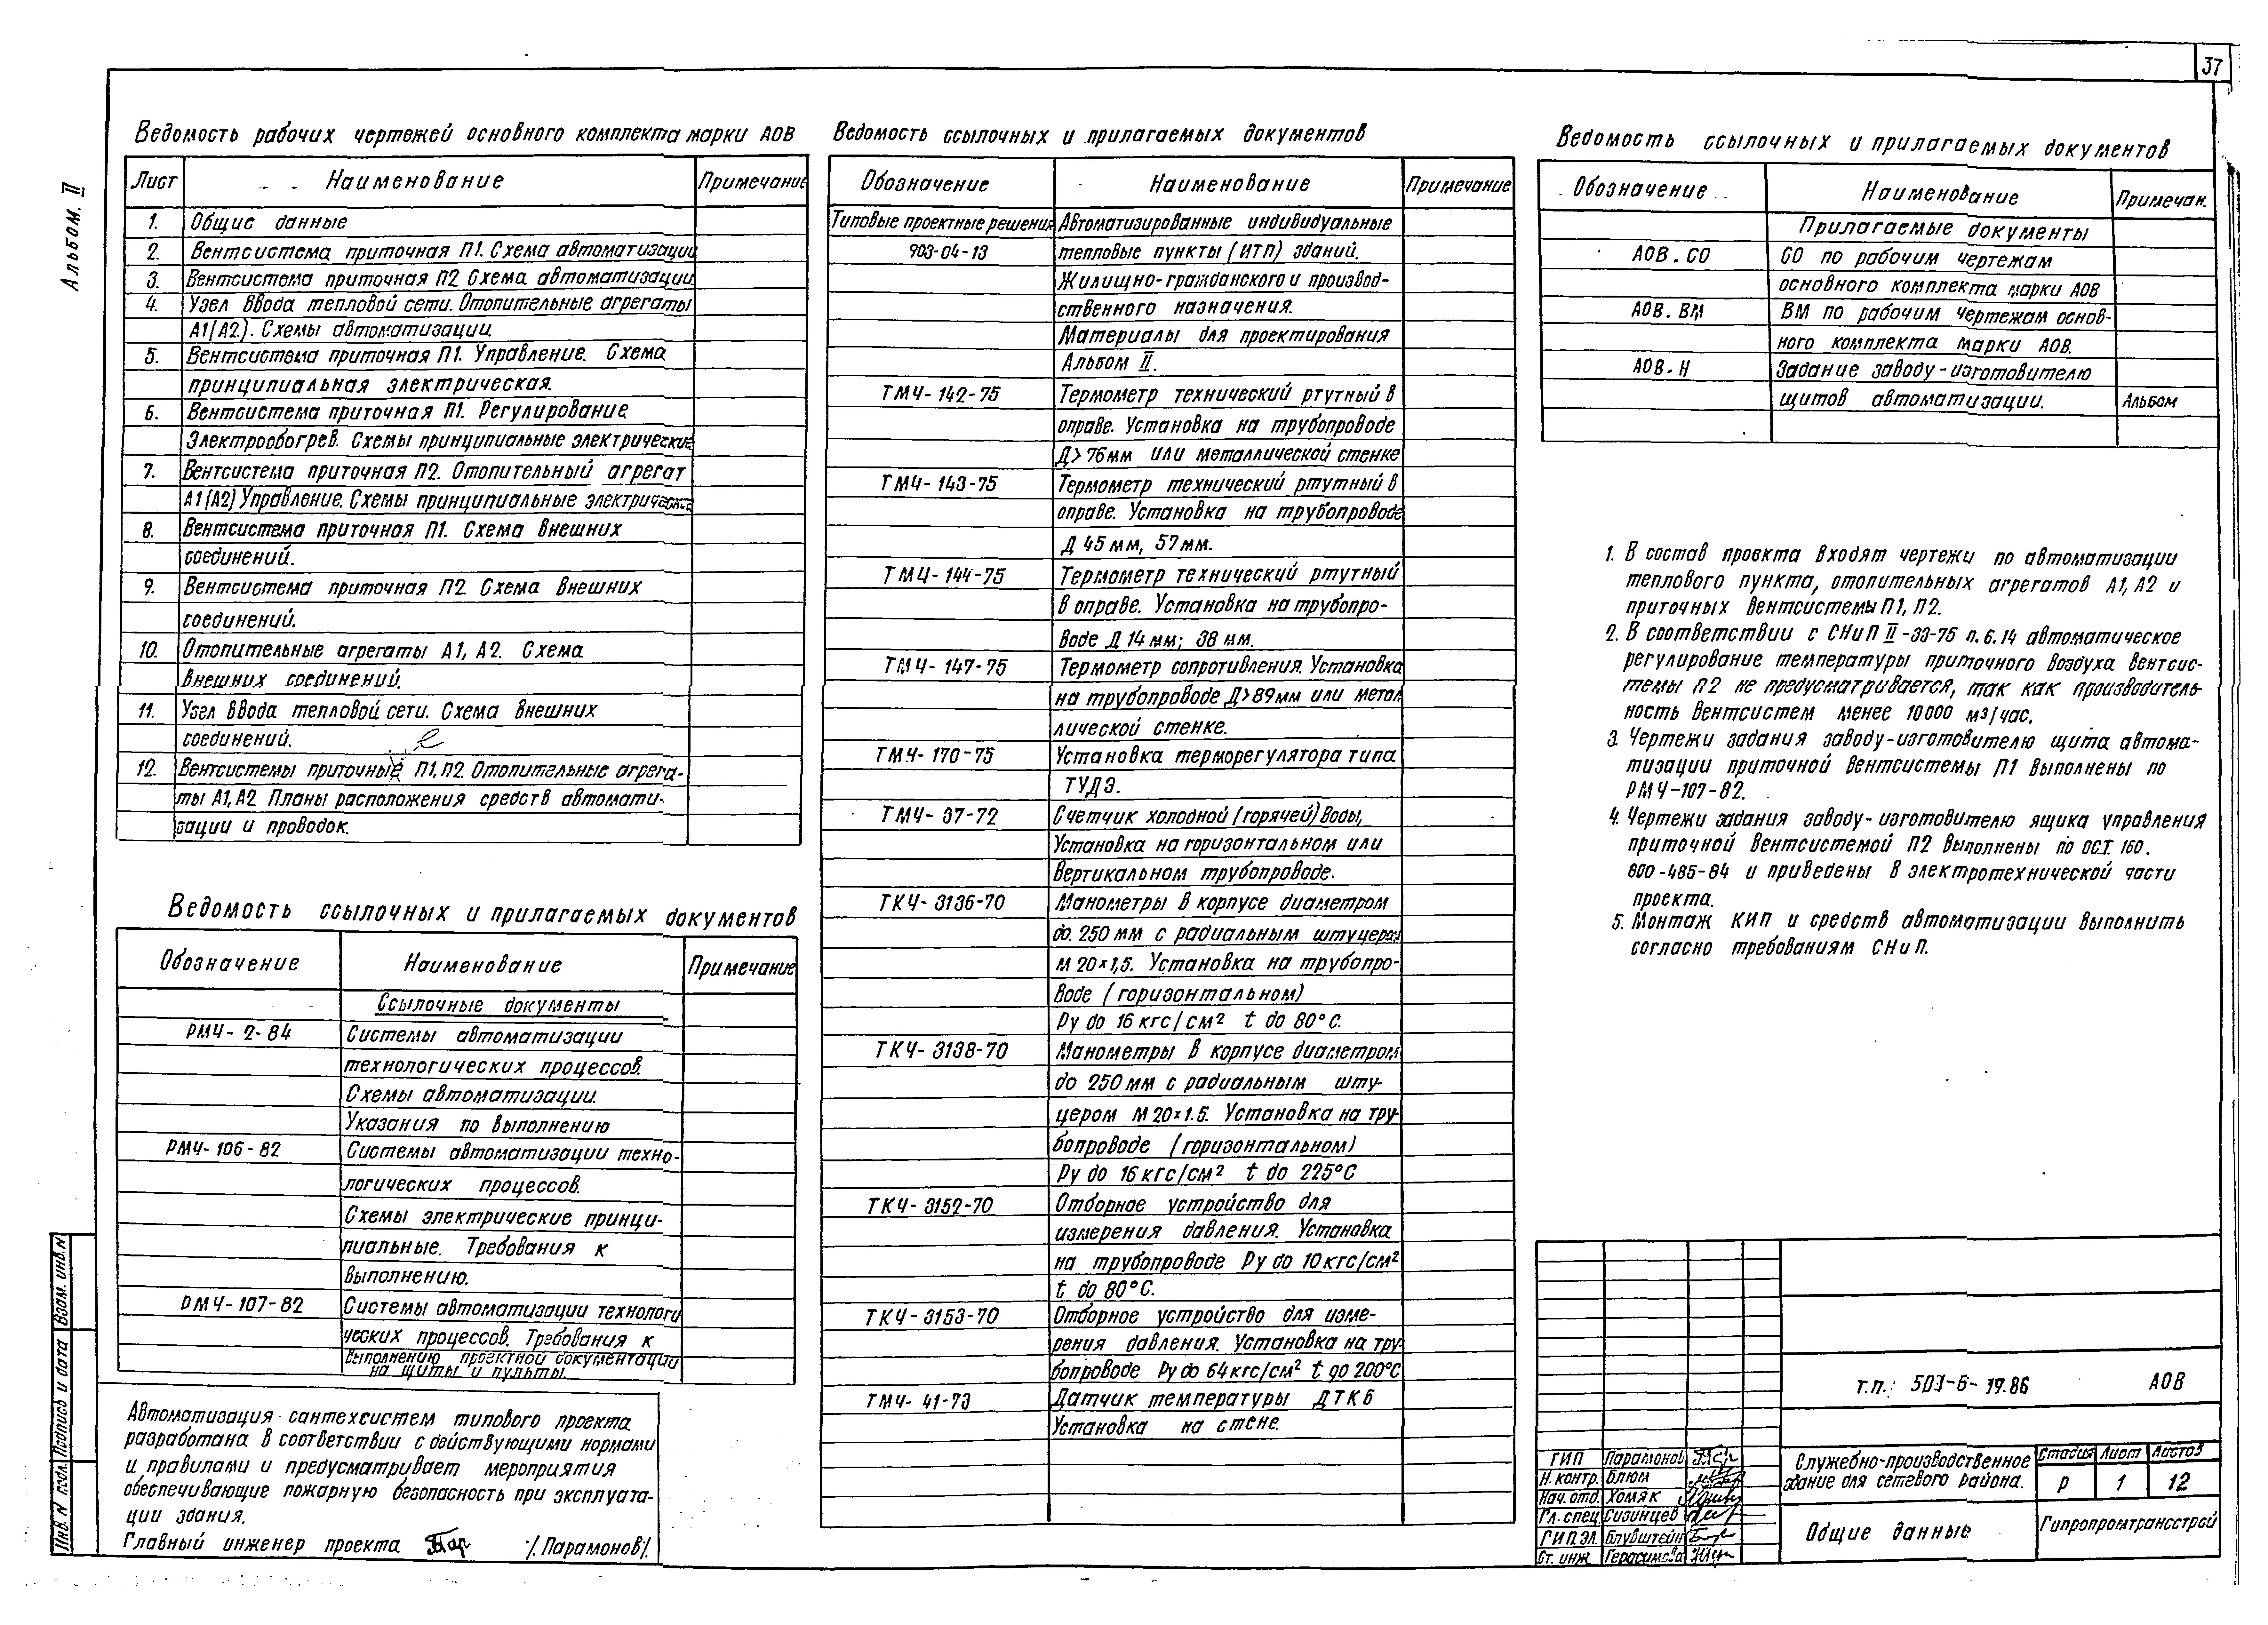 37
Альбом. II
Ведомость рабочих чертежей основного комплекта марки АОВ
Лист Наименование Примечание
1. Общие данные
2. Вентсистема приточная П1. Схема автоматизации
3. Вентсистема приточная П2 Схема автоматизации
4. Узел ввода тепловой сети. Отопительные агрегаты
А1(А2). Схемы автоматизации
5. Вентсистема приточная П1. Управление. Схема
принципиальная электрическая.
6. Вентсистема приточная П1. Регулирование.
Электрообогрев. Схемы принципиальные электрические
7. Вентсистема приточная П2. Отопительный агрегат
А1(А2) Управление. Схемы принципиальные электрические
8. Вентсистема приточная П1. Схема внешних
соединений.
9. Вентсистема приточная П2 Схема внешних
соединений.
10. Отопительные агрегаты А1, А2. Схема
внешних соединений.
11. Узел ввода тепловой сети. Схема внешних
соединений.
е
12. Вентсистемы приточные П1, П2. Отопительные агрега-
ты А1, А2 Планы расположения средств автомати-
зации и проводок.
Ведомость ссылочных и прилагаемых документов
Обозначение Наименование Примечание
Ссылочные документы
РМ4-2-84 Системы автоматизации
технологических процессов.
Схемы автоматизации.
Указания по выполнению
РМ4-106-82 Системы автоматизации техно-
логических процессов.
Схемы электрические принци-
пиальные. Требования к
выполнению.
РМ4-107-82 Системы автоматизации технологи
ческих процессов. Требования к
выполнению проектной документации
на щиты и пульты.
Автоматизация сантехсистем типового проекта
разработана в соответствии с действующими нормами
и правилами и предусматривает мероприятия
обеспечивающие пожарную безопасность при эксплуата-
ции здания.
Главный инженер проекта /Парамонов/.
Взам. инв. N
Подпись и дата
Инв. N подл.
Ведомость ссылочных и прилагаемых документов
Обозначение Наименование Примечание
Типовые проектные решения Автоматизированные индивидуальные
903-04-13 тепловые пункты (ИТП) зданий.
Жилищно-гражданского и производ-
ственного назначения.
Материалы для проектирования
Альбом II.
ТМ4-142-75 Термометр технический ртутный в
оправе. Установка на трубопроводе
Д>76мм или металлической стенке
ТМ4-143-75 Термометр технический ртутный в
оправе. Установка на трубопроводе
Д 45 мм, 57 мм.
ТМ4-144-75 Термометр технический ртутный
в оправе. Установка на трубопро-
воде Д 14 мм; 38 мм.
ТМ4-147-75 Термометр сопротивления. Установка
на трубопроводе Д>89мм или метал
лической стенке.
ТМ4-170-75 Установка терморегулятора типа
ТУДЭ.
ТМ4-37-72 Счетчик холодной (горячей) воды,
Установка на горизонтальном или
вертикальном трубопроводе.
ТК4-3136-70 Манометры в корпусе диаметром
до 250 мм с радиальным штуцером
М 20×1,5. Установка на трубопро-
воде (горизонтальном)
Ру до 16 кгс/см² t до 80°С.
ТК4-3138-70 Манометры в корпусе диаметром
до 250 мм с радиальным шту-
цером М 20×1.5. Установка на тру-
бопроводе (горизонтальном)
Ру до 16 кгс/см² t до 225°С
ТК4-3152-70 Отборное устройство для
измерения давления. Установка
на трубопроводе Ру до 10 кгс/см²
t до 80°С.
ТК4-3153-70 Отборное устройство для изме-
рения давления. Установка на тру-
бопроводе Ру до 64 кгс/см² t до 200°С
ТМ4-41-73 Датчик температуры ДТКБ
Установка на стене.
Ведомость ссылочных и прилагаемых документов
Обозначение Наименование Примечан.
Прилагаемые документы
АОВ.СО СО по рабочим чертежам
основного комплекта марки АОВ
АОВ.ВМ ВМ по рабочим чертежам основ-
ного комплекта марки АОВ.
АОВ.Н Задание заводу-изготовителю
щитов автоматизации. Альбом
1. В состав проекта входят чертежи по автоматизации
теплового пункта, отопительных агрегатов А1, А2 и
приточных вентсистемы П1, П2.
2. В соответствии с СНиП II-33-75 п.6.14 автоматическое
регулирование температуры приточного воздуха вентсис-
темы П2 не предусматривается, так как производитель-
ность вентсистем менее 10000 м3/час.
3. Чертежи задания заводу-изготовителю щита автома-
тизации приточной вентсистемы П1 выполнены по
РМ4-107-82.
4. Чертежи задания заводу-изготовителю ящика управления
приточной вентсистемой П2 выполнены по ОСТ 160.
800-485-84 и приведены в электротехнической части
проекта.
5. Монтаж КИП и средств автоматизации выполнить
согласно требованиям СНиП.
т.п.: 503-6-19.86 АОВ
ГИП Парамонов
Н.контр. Блюм
Нач.отд. Хомяк
Гл. спец. Сизинцев
ГИП ЭЛ. Блувштейн
Ст. инж Герасимова
Служебно-производственное
здание для сетевого района.
Стадия Лист Листов
Р 1 12
Общие данные
Гипропромтрансстрой